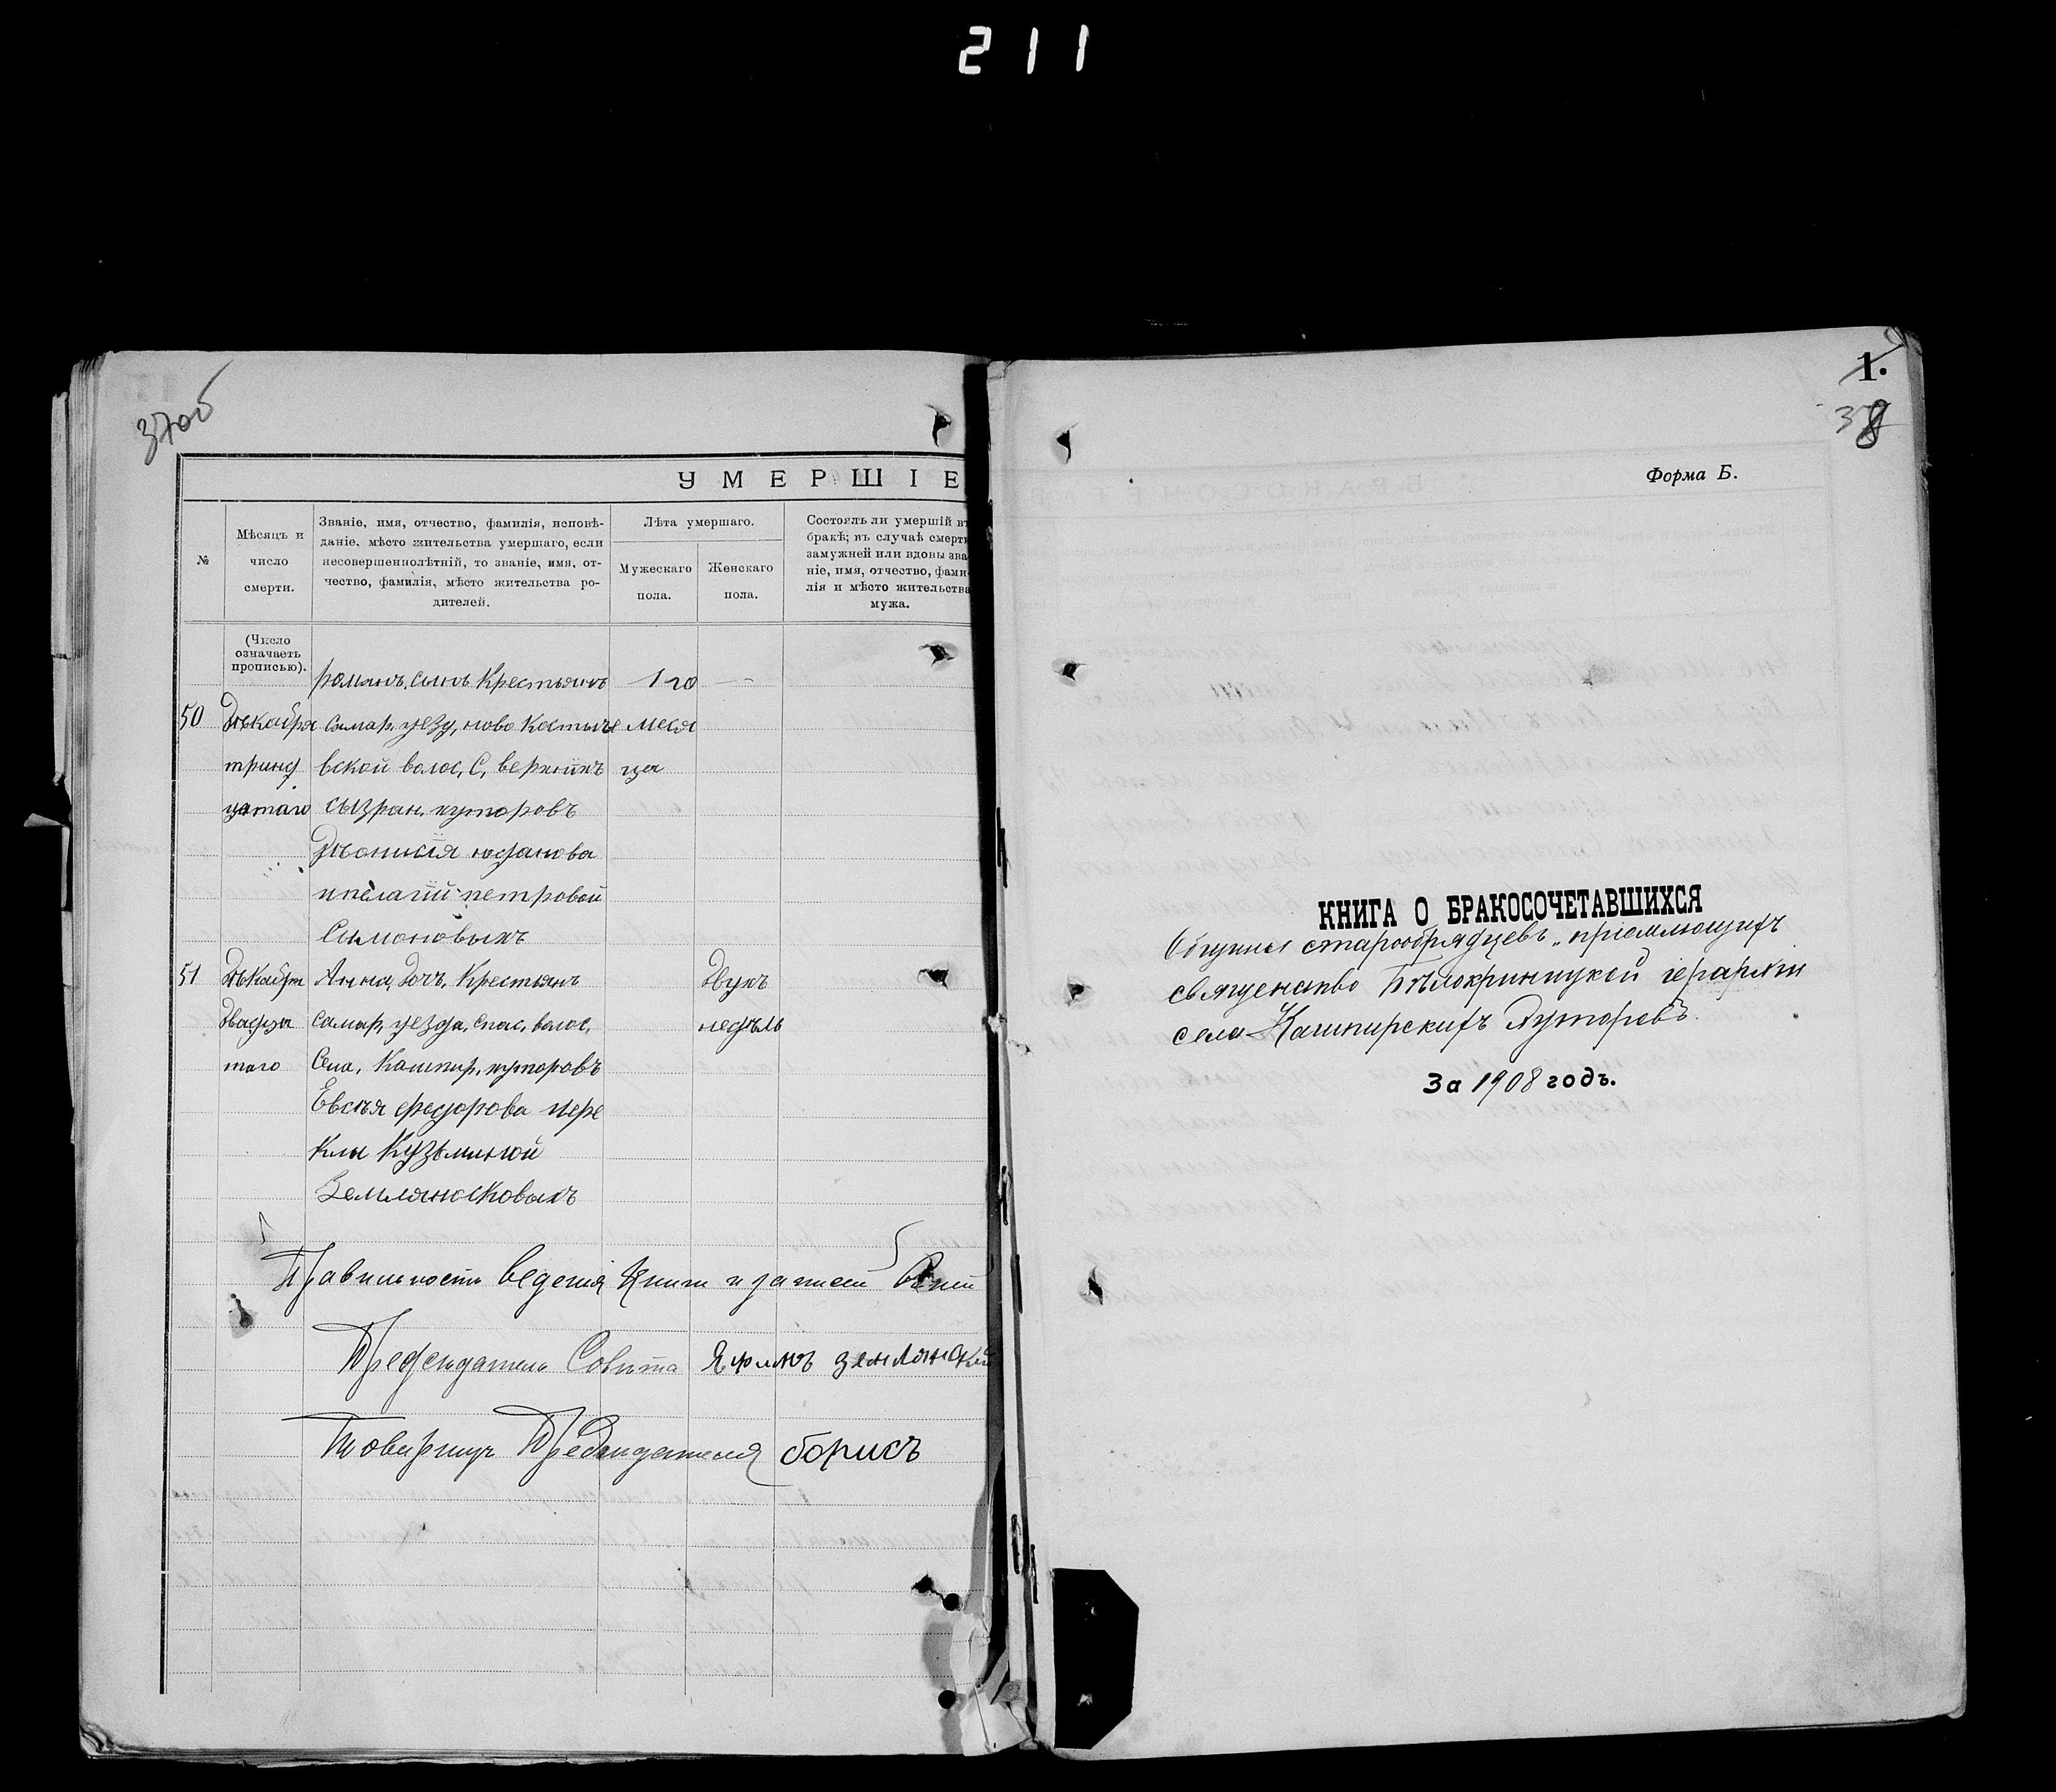 211
37об
УМЕРШІЕ
№
Мѣсяцъ и
число
смерти.
Званіе, имя, отчество, фамилія, исповѣ-
даніе, мѣсто жительства умершаго, если
несовершеннолѣтній, то званіе, имя, от-
чество, фамилія, мѣсто жительства ро-
дителей.
Лѣта умершаго.
Мужескаго
пола.
Женскаго
пола.
Состоялъ ли умершій въ
бракѣ; въ случаѣ смерти
замужней или вдовы зва-
ніе, имя, отчество, фами-
лія и мѣсто жительства
мужа.
(Число
означаетъ
прописью).
романъ, сынъ Крестьянъ 1 го —
50 Дѣкабря самар, уезу, ново Костыче меся
тринд вской волос, С, верхнихъ ца
цатаго сызран, хуторовъ
Дѣонисія
ипелагіи петровой
Симоновыхъ
51 Анна, Доч, Крестьянъ Двухъ
Двадца самар, уезда, спас, волос, недѣль
таго Села, Кашпир, хуторовъ
Евсѣя федорова ифе
клы Кузьминой
Землянсковыхъ
Правильность веденія Книги и записей
Предсѣдатель Совѣта землянской
Товарищъ Предсѣдателя борисъ
1.
38
Форма Б.
КНИГА О БРАКОСОЧЕТАВШИХСЯ
Общины старообрядцевъ „пріемлющихъ
священство Бѣлокриницкой іерархіи
села Кашпирскихъ Хуторовъ.
За 1908 годъ.